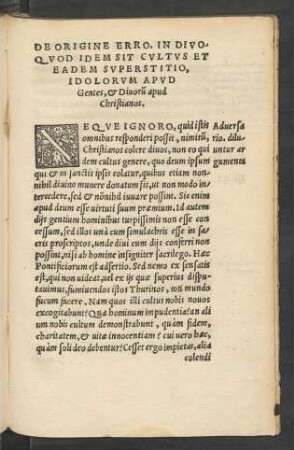 DE ORIGINE ERRO. IN DIVO-
QVOD IDEM SIT CVLTVS ET
EADEM SVPERSTITIO,
IDOLORVM APVD
Gentes, & Diuorũ apud
Christianos.
NEQVE IGNORO, quid istis
omnibus responderi possit, nimirũ,
Christianos colere diuos, non eo qui
dem cultus genere, quo deum ipsum
& in sanctis ipsis colatur, quibus etiam non-
nihil diuino munere donatum sit, ut non modo in-
tercedere, sed & nõnihil iuuare possint. Sic enim
apud deum esse uirtuti suum præmium. Id autem
dijs gentium hominibus turpissimis non esse con
cessum, sed illos unà cum simulachris esse in sa-
cris proscriptos, unde diui cum dijs conferri non
possint, nisi ab homine insigniter sacrilego. Hæc
Pontificiorum est adsertio. Sed nemo ex sensatis
est, qui non uideat, uel ex ijs quæ superius dispu-
tauimus, fumiuendos istos Thurinos, toti mundo
fucum facere. Nam quos illi cultus nobis nouos
excogitabunt? Quæ hominum impudentia? an ali
um nobis cultum demonstrabunt, quàm fidem,
charitatem, & uitæ innocentiam? cui uero hæc,
quàm soli deo debentur? Cesset ergo impietas, alia
colendi
Aduersa
rio. dilu-
untur ar
gumenta